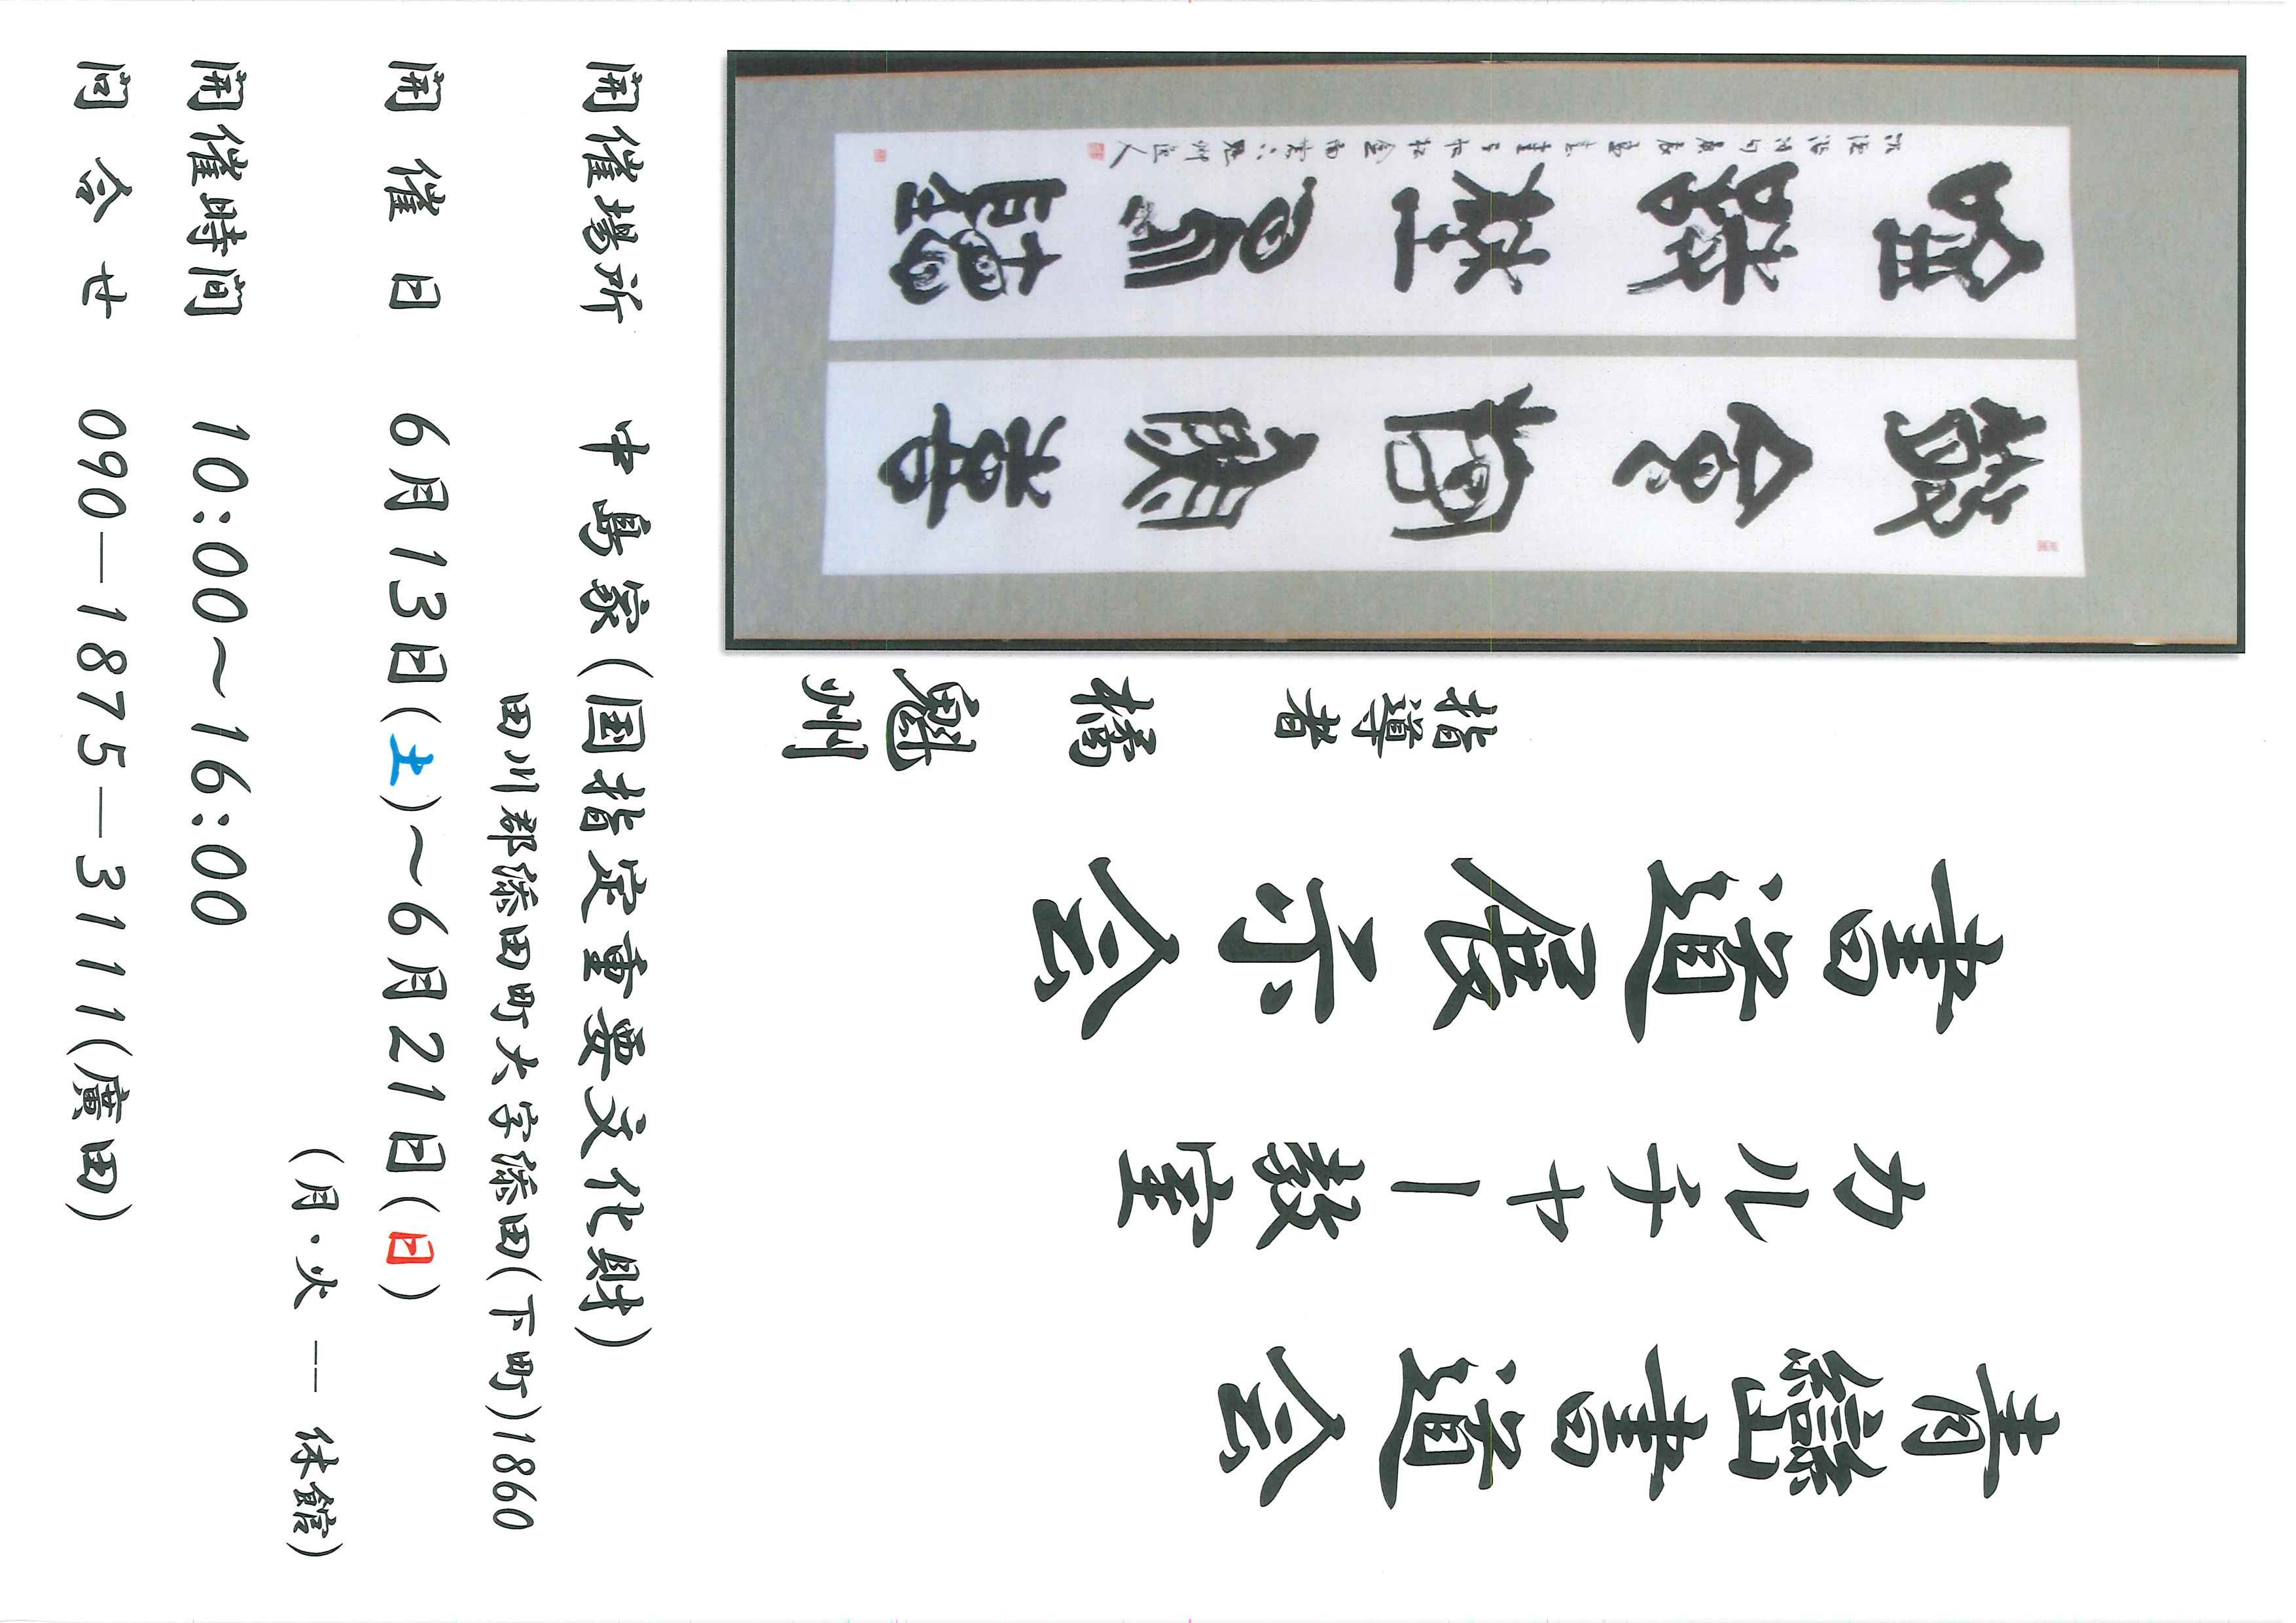 青巒書道会
カルチャー教室
書道展示会
指導者 橘 魁州
開催場所 中島家(国指定重要文化財)
田川郡添田町大字添田(下町)1860
開催日 6月13日(土)～6月21日(日)
(月・火 ―― 休館)
開催時間 10:00～16:00
問合せ 090―1875―3111(廣田)